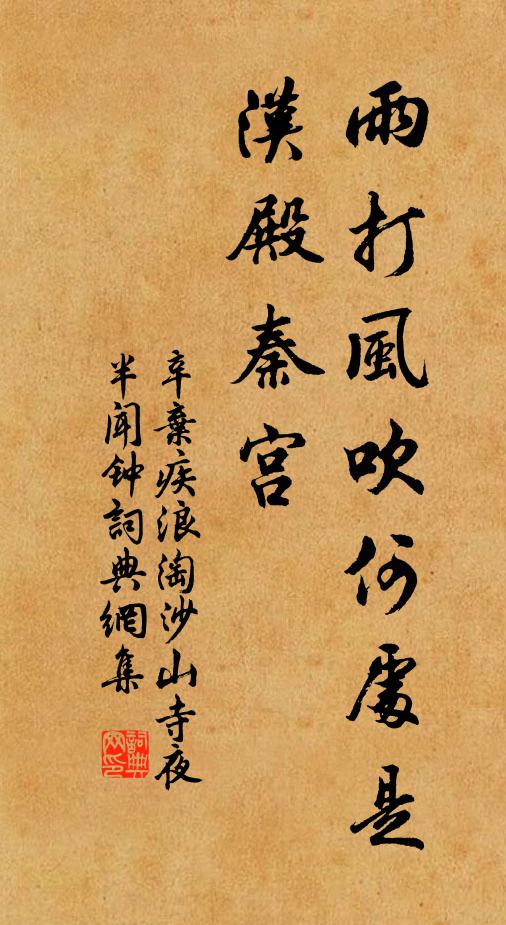 雨打風吹何處是
漢殿秦宮
辛棄疾浪淘沙山寺夜
半聞钟詞典網集
詞典网印